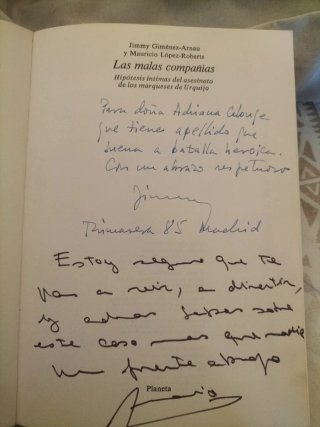 Jimmy Giménez-Arnau
y Mauricio López-Roberts
Las malas compañías
Hipótesis íntimas del asesinato
de los marqueses de Urquijo
Para doña Adriana
que tienes apellido que
suena a batalla heroica.
Con un abrazo respetuoso
Jimmy
Primavera 85 Madrid
Estoy seguro que te
vas a reir, a divertir,
y además sabes sobre
este caso mas que nadie
Un fuerte abrazo
Planeta